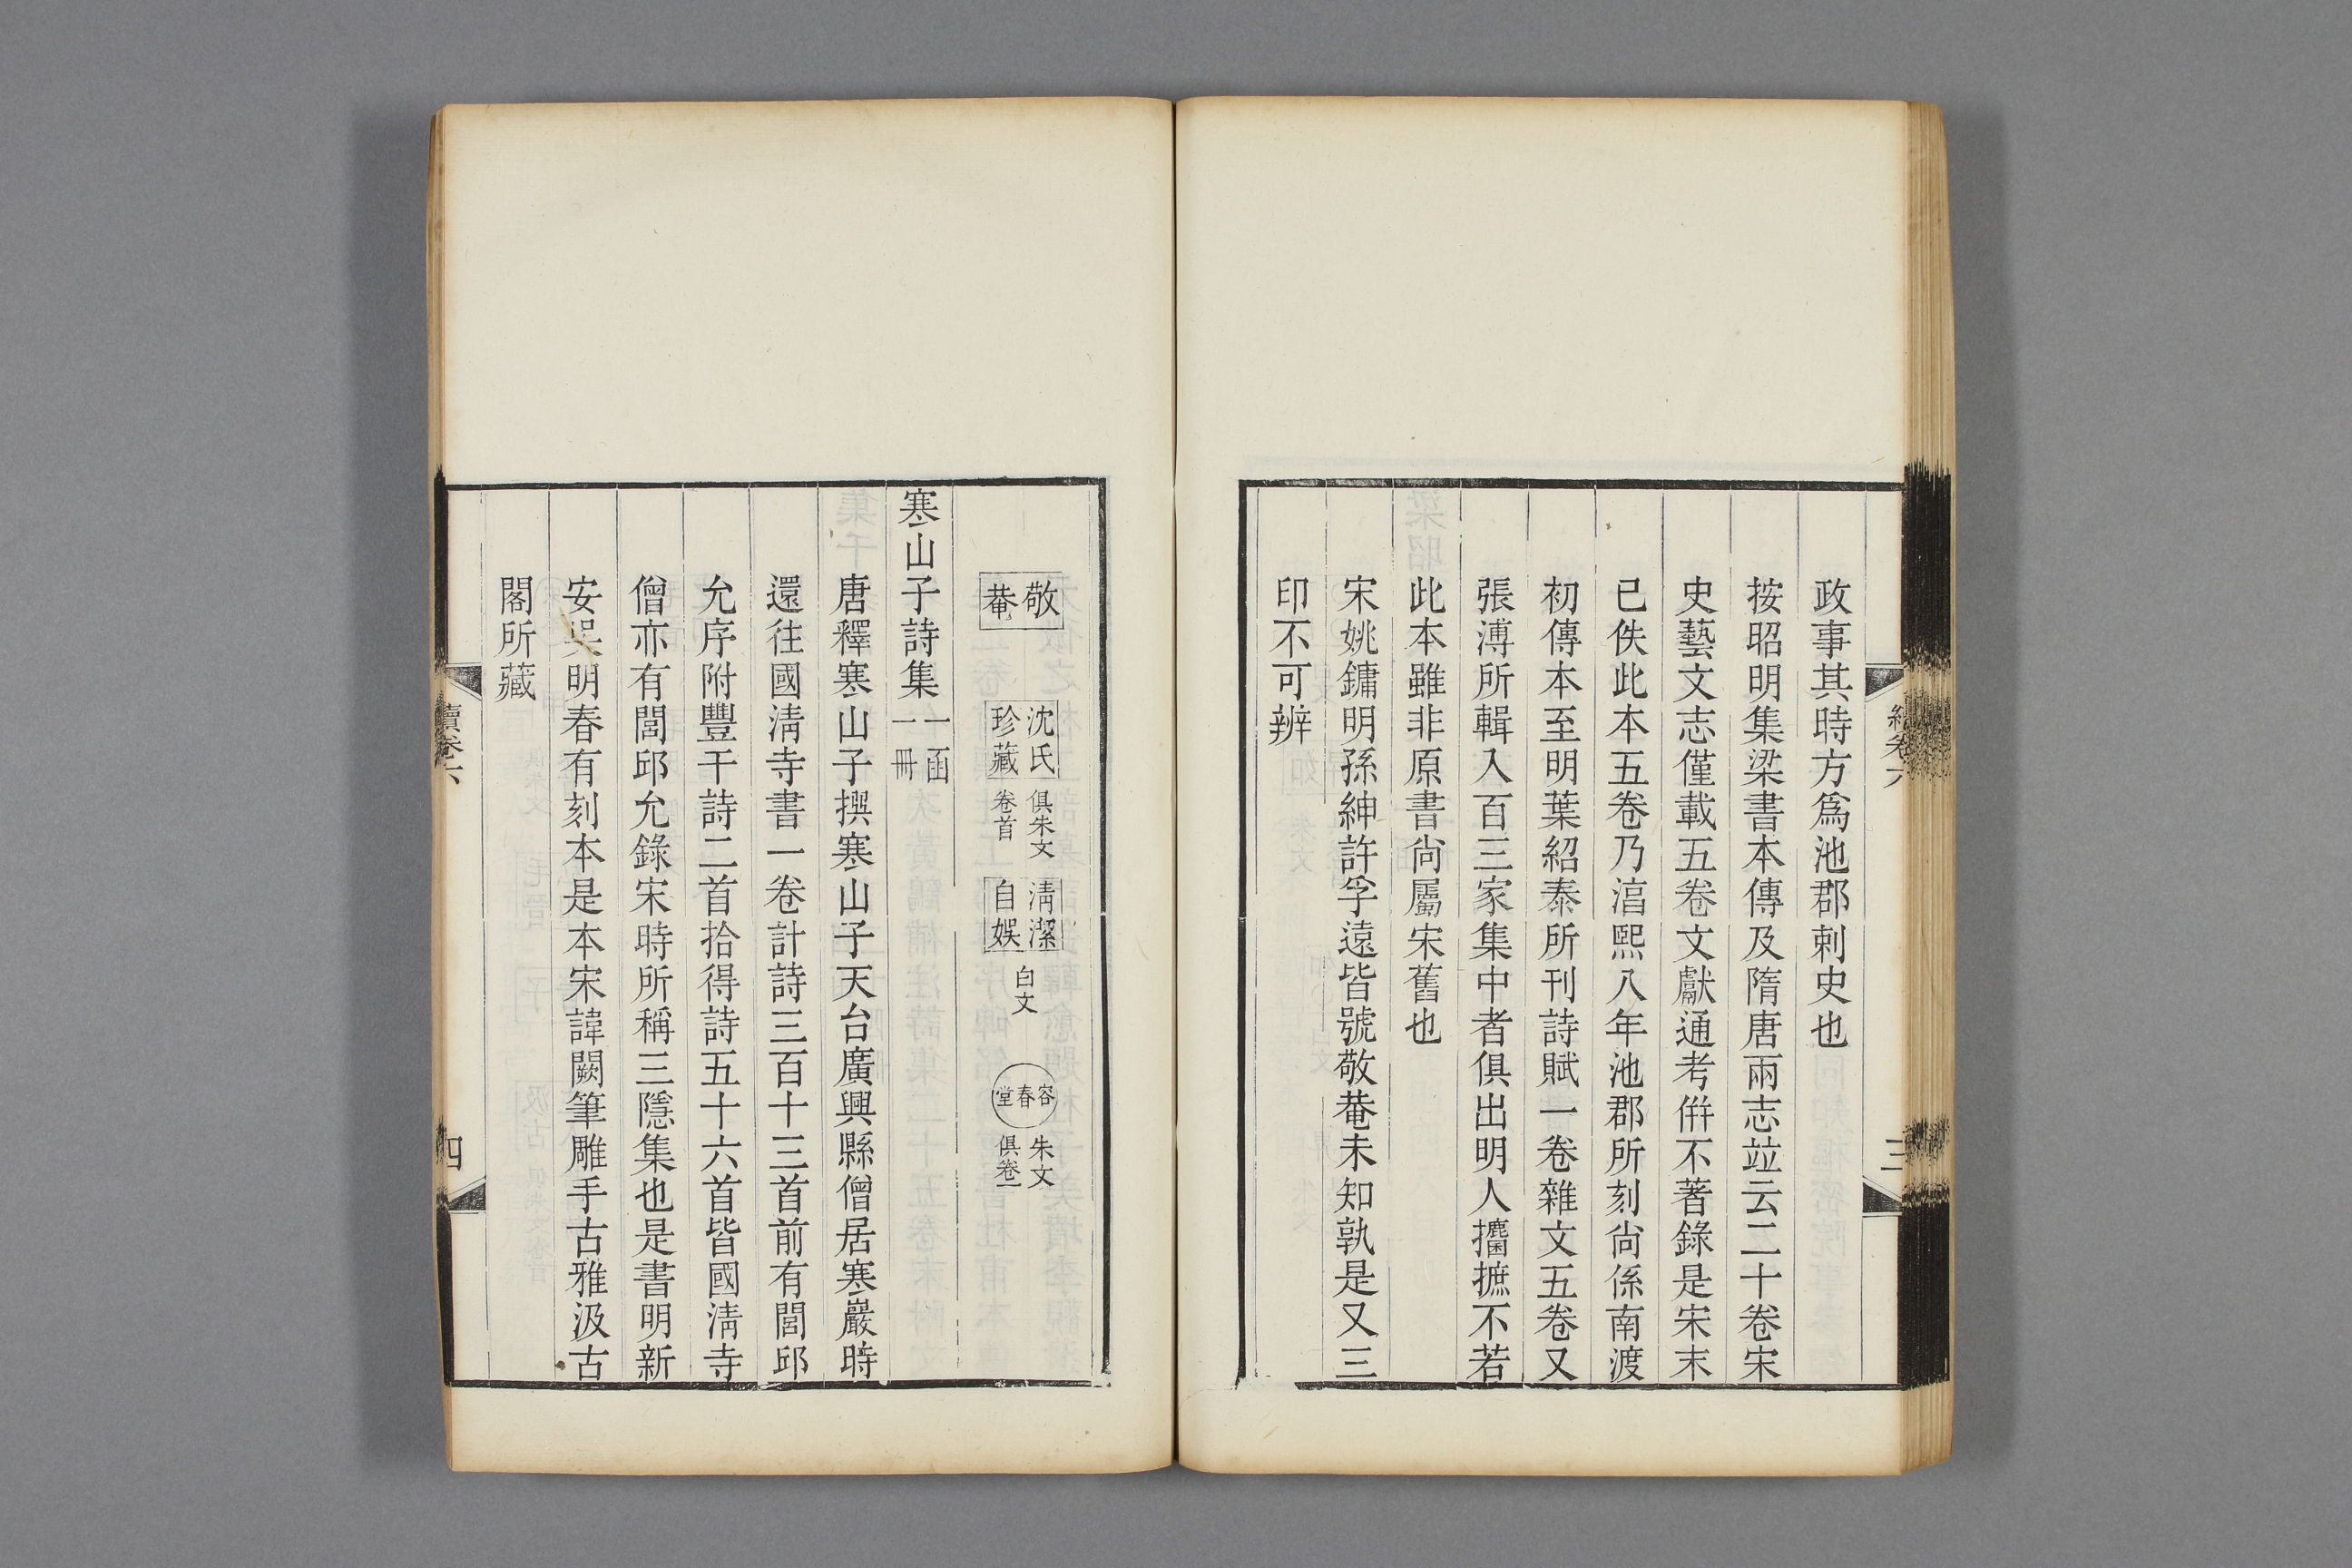 政事其時方爲池郡刺史也
按昭明集梁書本傳及隋唐兩志竝云二十卷宋
史藝文志僅載五卷文獻通考倂不著錄是宋末
已佚此本五卷乃湻熙八年池郡所刻尙係南渡
初傳本至明葉紹泰所刊詩賦一卷雜文五卷又
張溥所輯入百三家集中者俱出明人攟摭不若
此本雖非原書尙屬宋舊也
宋姚鏞明孫紳許孚遠皆號敬菴未知孰是又三
印不可辨
續卷六
三
敬菴
沈氏珍藏
俱朱文卷首
淸潔自娛
白文
容春堂
朱文俱卷一
寒山子詩集
一函一冊
唐釋寒山子撰寒山子天台廣興縣僧居寒巖時
還往國淸寺書一卷計詩三百十三首前有閭邱
允序附豐干詩二首拾得詩五十六首皆國淸寺
僧亦有閭邱允錄宋時所稱三隱集也是書明新
安吳明春有刻本是本宋諱闕筆雕手古雅汲古
閣所藏
續卷六
四